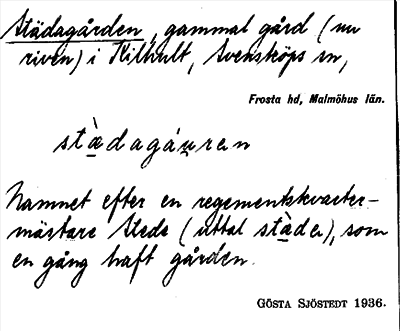 Städagården, gammal gård (nu
riven) i Kilhult, Svensköps sn,
Frosta hd, Malmöhus län.
stä̀dagáu̯ran
Namnet efter en regementskvarter-
mästare Stede (uttal stä̀de), som
en gång haft gården.
GÖSTA SJÖSTEDT 1936.